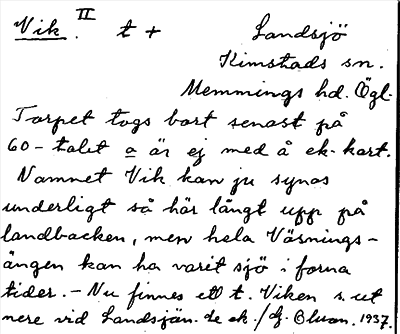 Vik. II t + Landsjö
Kimstads sn.
Memmings hd. Ögl.
Torpet togs bort senast på
60-talet a är ej med å ek. kart.
Namnet Vik kan ju synas
underligt så här långt upp på
landbacken, men helaVäsnings-
ängen kan ha varit sjö i forna
tider. - Nu finnes ett t. Viken s. ut
nere vid Landsjön. de ek. / G. 1937.